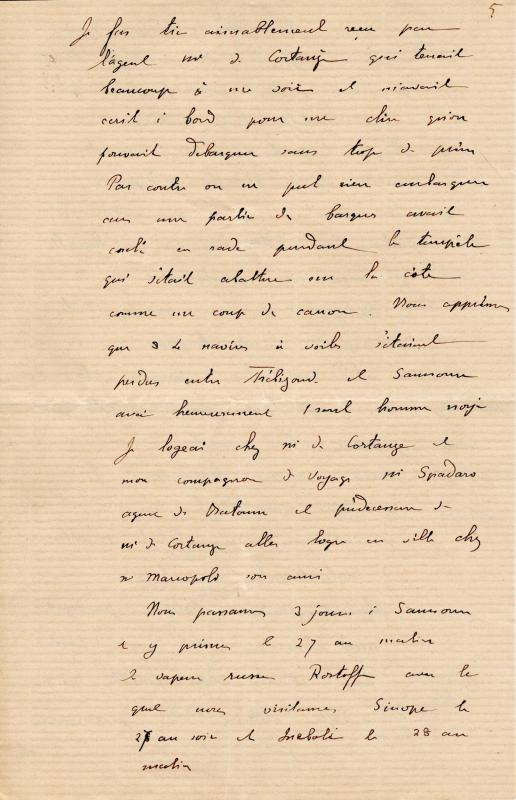 5
Je fus très aimablement reçu par
l'agent Mr de Cortanze qui tenait
beaucoup à me voir et m'avait
écrit à bord pour me dire qu'on
pouvait débarquer sans trop de peine
Par contre on ne put rien embarquer
car une partie des barques avait
coulé en rade pendant la tempête
qui s'était abattue sur la côte
comme un coup de canon. Nous apprimes
que 3 à 4 navires à voiles s'étaient
perdus entre Trébizonde et Samsoun
avec heureusement 1 seul homme noyé
Je logeai chez Mr de Cortanze et
mon compagnon de voyage Mr Spadaro
agent de Batoum et prédécesseur de
Mr de Cortanze alla loger en ville chez
Mr Marcopoli son ami
Nous passames 3 jours à Samsoun
et y primes le 27 au matin
le vapeur russe Rostoff avec le
quel nous visitames Sinope le
27 au soir et Ineboli le 28 au
matin